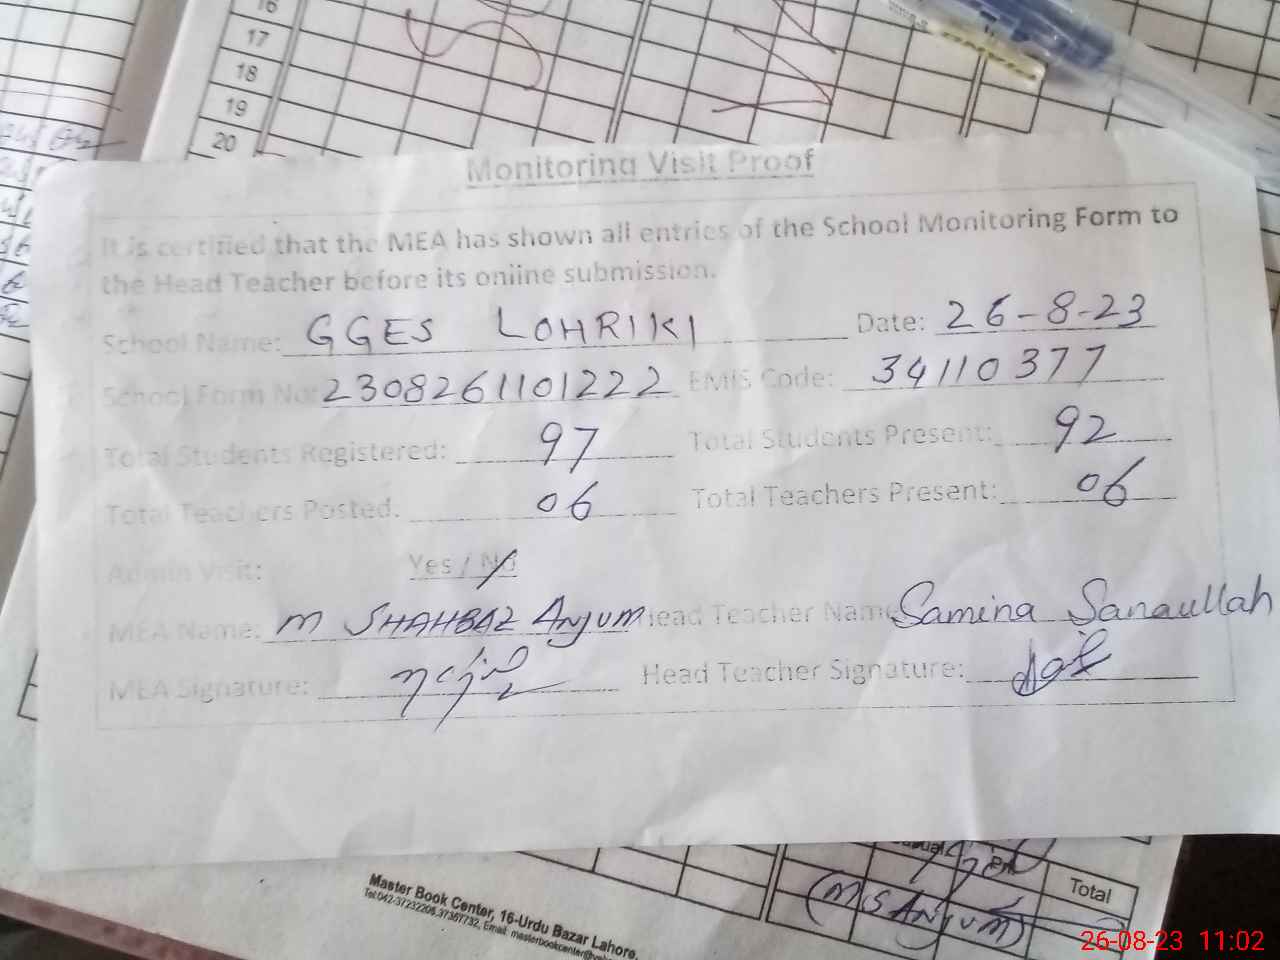 16
17
18
19
20
Monitoring Visit Proof
It is certified that the MEA has shown all entries of the School Monitoring Form to
the Head Teacher before its online submission.
School Name: GGES LOHRIKI Date: 26-8-23
School Form No: 2308261101222 EMIS Code: 34110377
Total Students Registered: 97 Total Students Present: 92
Total Teachers Posted: 06 Total Teachers Present: 06
Admin Visit: Yes / No
MEA Name: M SHAHBAZ ANJUM Head Teacher Name Samina Sanaullah
MEA Signature: Head Teacher Signature:
Total
(M.S ANJUM)
Master Book Center, 16-Urdu Bazar Lahore.
Tel:042-37232206,37367732, Email:
26-08-23 11:02